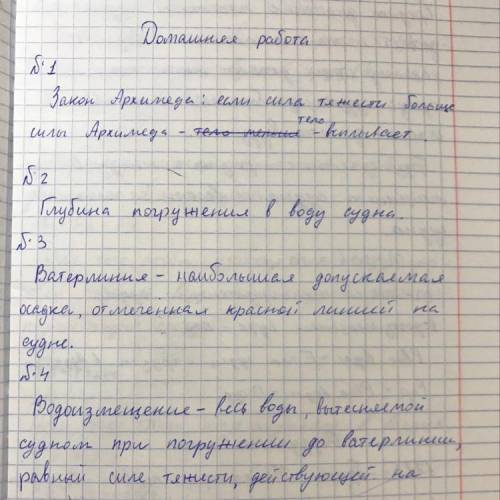 Домашняя работа
№1
Закон Архимеда: если сила тяжести больше
силы Архимеда - тело меньше тело - вплывает.
№2
Глубина погружения в воду судна.
№3
Ватерлиния - наибольшая допускаемая
осадка, отмеченная красной линией на
судне.
№4
Водоизмещение - весь воды, вытесняемой
судном при погружении до ватерлинии,
равный силе тяжисти, действующей на